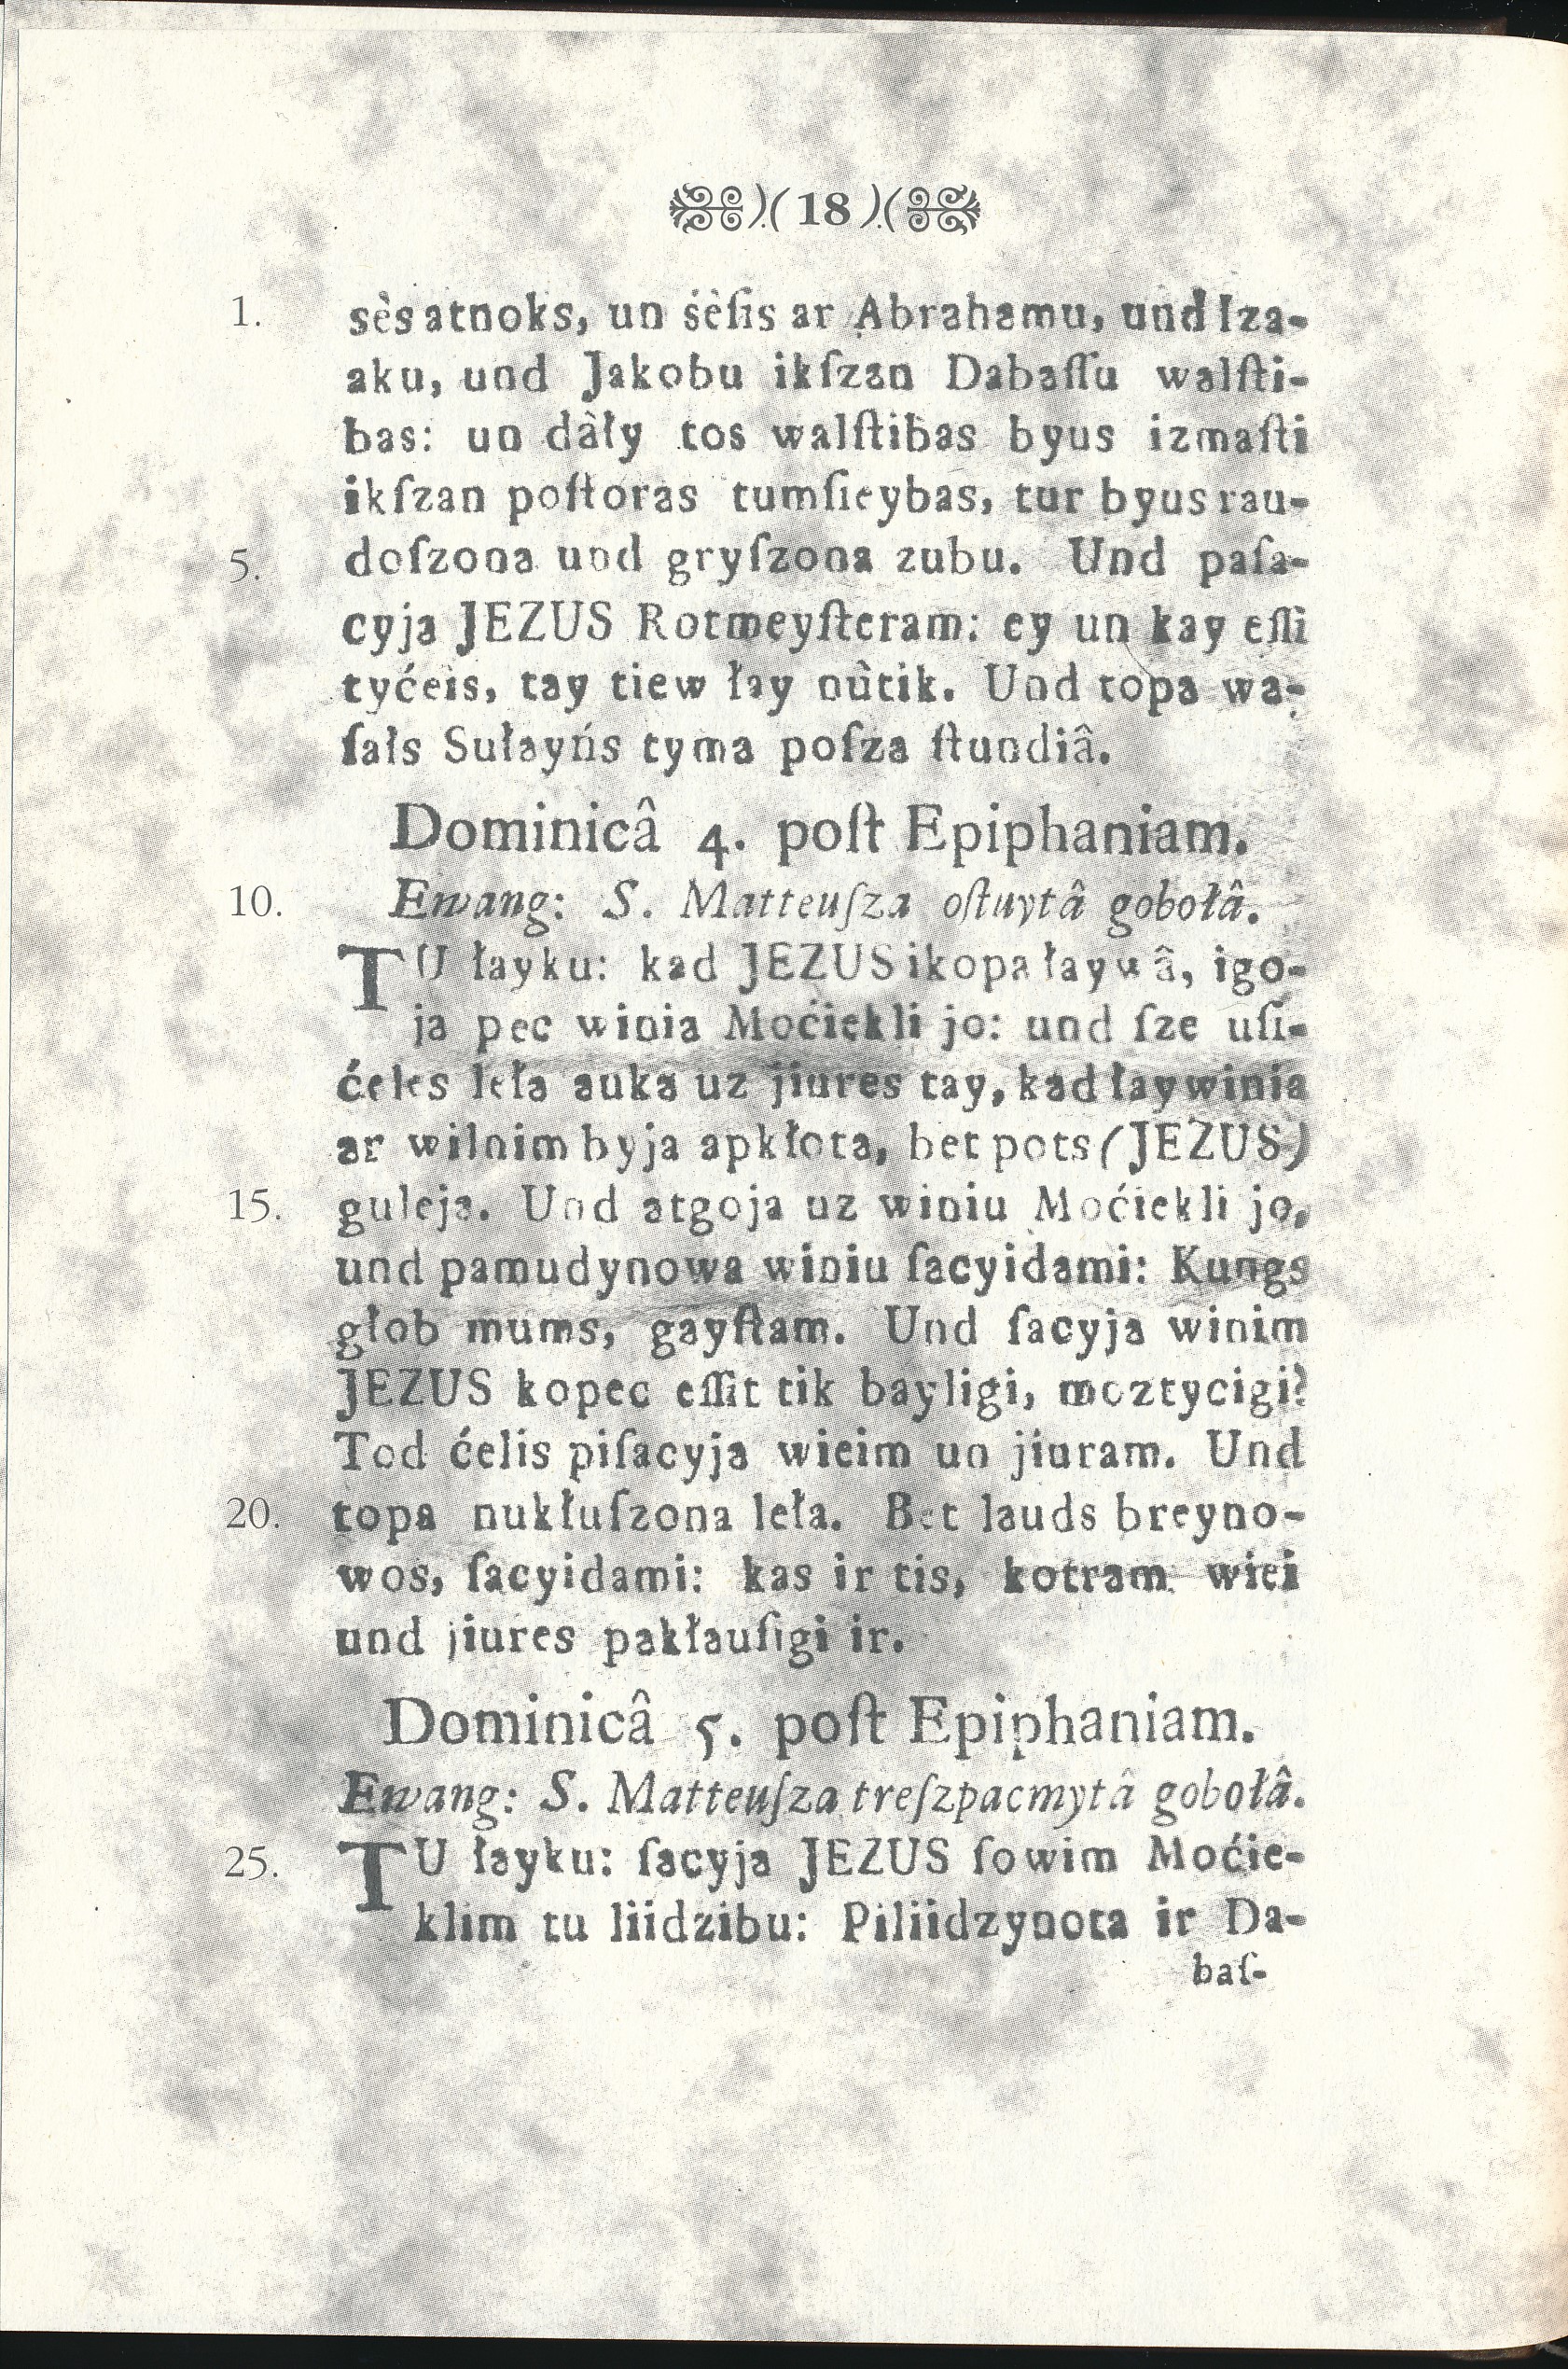 )( 18 )(
1. sès atnoks, un śèſis ar Abrahamu, und Iza-
aku, und Jakobu ikſzan Dabaſſu walſti-
bas: un dàły tos walſtibas byus izmaſti
ikſzan poſtoras tumſieybas, tur byus rau-
5. doſzona und gryſzona zubu. Und paſa-
cyja JEZUS Rotmeyſteram: ey un kay eſſi
tyćeis, tay tiew łay nùtik. Und topa wa-
ſałs Sułayńs tyma poſza ſtundiâ.
Dominicâ 4. poſt Epiphaniam.
10. Ewang: S. Matteuſza oſtuytâ gobołâ.
TU łayku: kad JEZUS ikopa łaywâ, igo-
ja pec winia Moćiekli jo: und ſze uſi-
ćeles leła auka uz jiures tay, kad łaywinia
ar wilnim byja apkłota, bet pots (JEZUS)
15. guleja. Und atgoja uz winiu Moćiekli jo,
und pamudynowa winiu ſacyidami: Kungs
głob mums, gayſtam. Und ſacyja winim
JEZUS kopec eſſit tik bayligi, moztycigi?
Tod ćelis piſacyja wieim un jiuram. Und
20. topa nukłuſzona leła. Bet lauds breyno-
wos, ſacyidami: kas ir tis, kotram wiei
und jiures pakłauſigi ir.
Dominicâ 5. poſt Epiphaniam.
Ewang: S. Matteuſza treſzpacmytâ gobołâ.
25. TU łayku: ſacyja JEZUS ſowim Moćie-
klim tu liidzibu: Piliidzynota ir Da-
baſ-